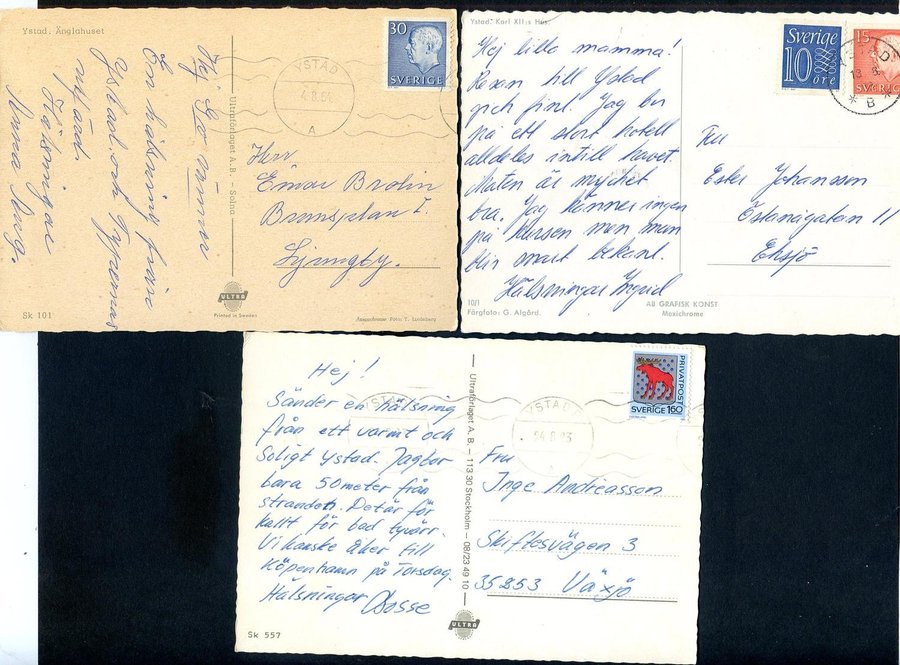 Ystad. Änglahuset
30
SVERIGE
YSTAD
4.8.64
A
Hej Go vänner
En hälsning från
Ystad. och Typernas
nejård.
Hälsningar
Anna Aug.
Ultraförlaget A.B. - Solna
Herr
Einar Brolin
Brunsplan 7.
Ljungby.
ULTRA
Printed in Sweden
Sk 101
Ystad. Karl XII:s Hus.
Sverige
10 öre
15
SVERIGE
B
Hej lilla mamma!
Resan till Ystad
gick fint. Jag bor
på ett stort hotell
alldeles intill havet.
Maten är mycket
bra. Jag känner ingen
på kursen men man
blir snart bekant.
Hälsningar Ingrid
Fru
Ester Johansson
Östanågatan 11
Eksjö
10/1
Färgfoto: G. Algård.
AB GRAFISK KONST
Maxichrome
Hej!
Sänder en hälsning
från ett varmt och
Soligt Ystad. Jag bor
bara 50 meter från
stranden. Det är för
kallt för bad tyvärr.
Vi kanske åker till
Köpenhamn på Torsdag.
Hälsningar Bosse
Ultraförlaget A. B. – 113 30 Stockholm – 08/23 49 10
PRIVATPOST
SVERIGE 160
YSTAD
YSTAD
24.8.83
Fru
Inge Andreasson
Skiftesvägen 3
35253 Växjö
ULTRA
Sk 557